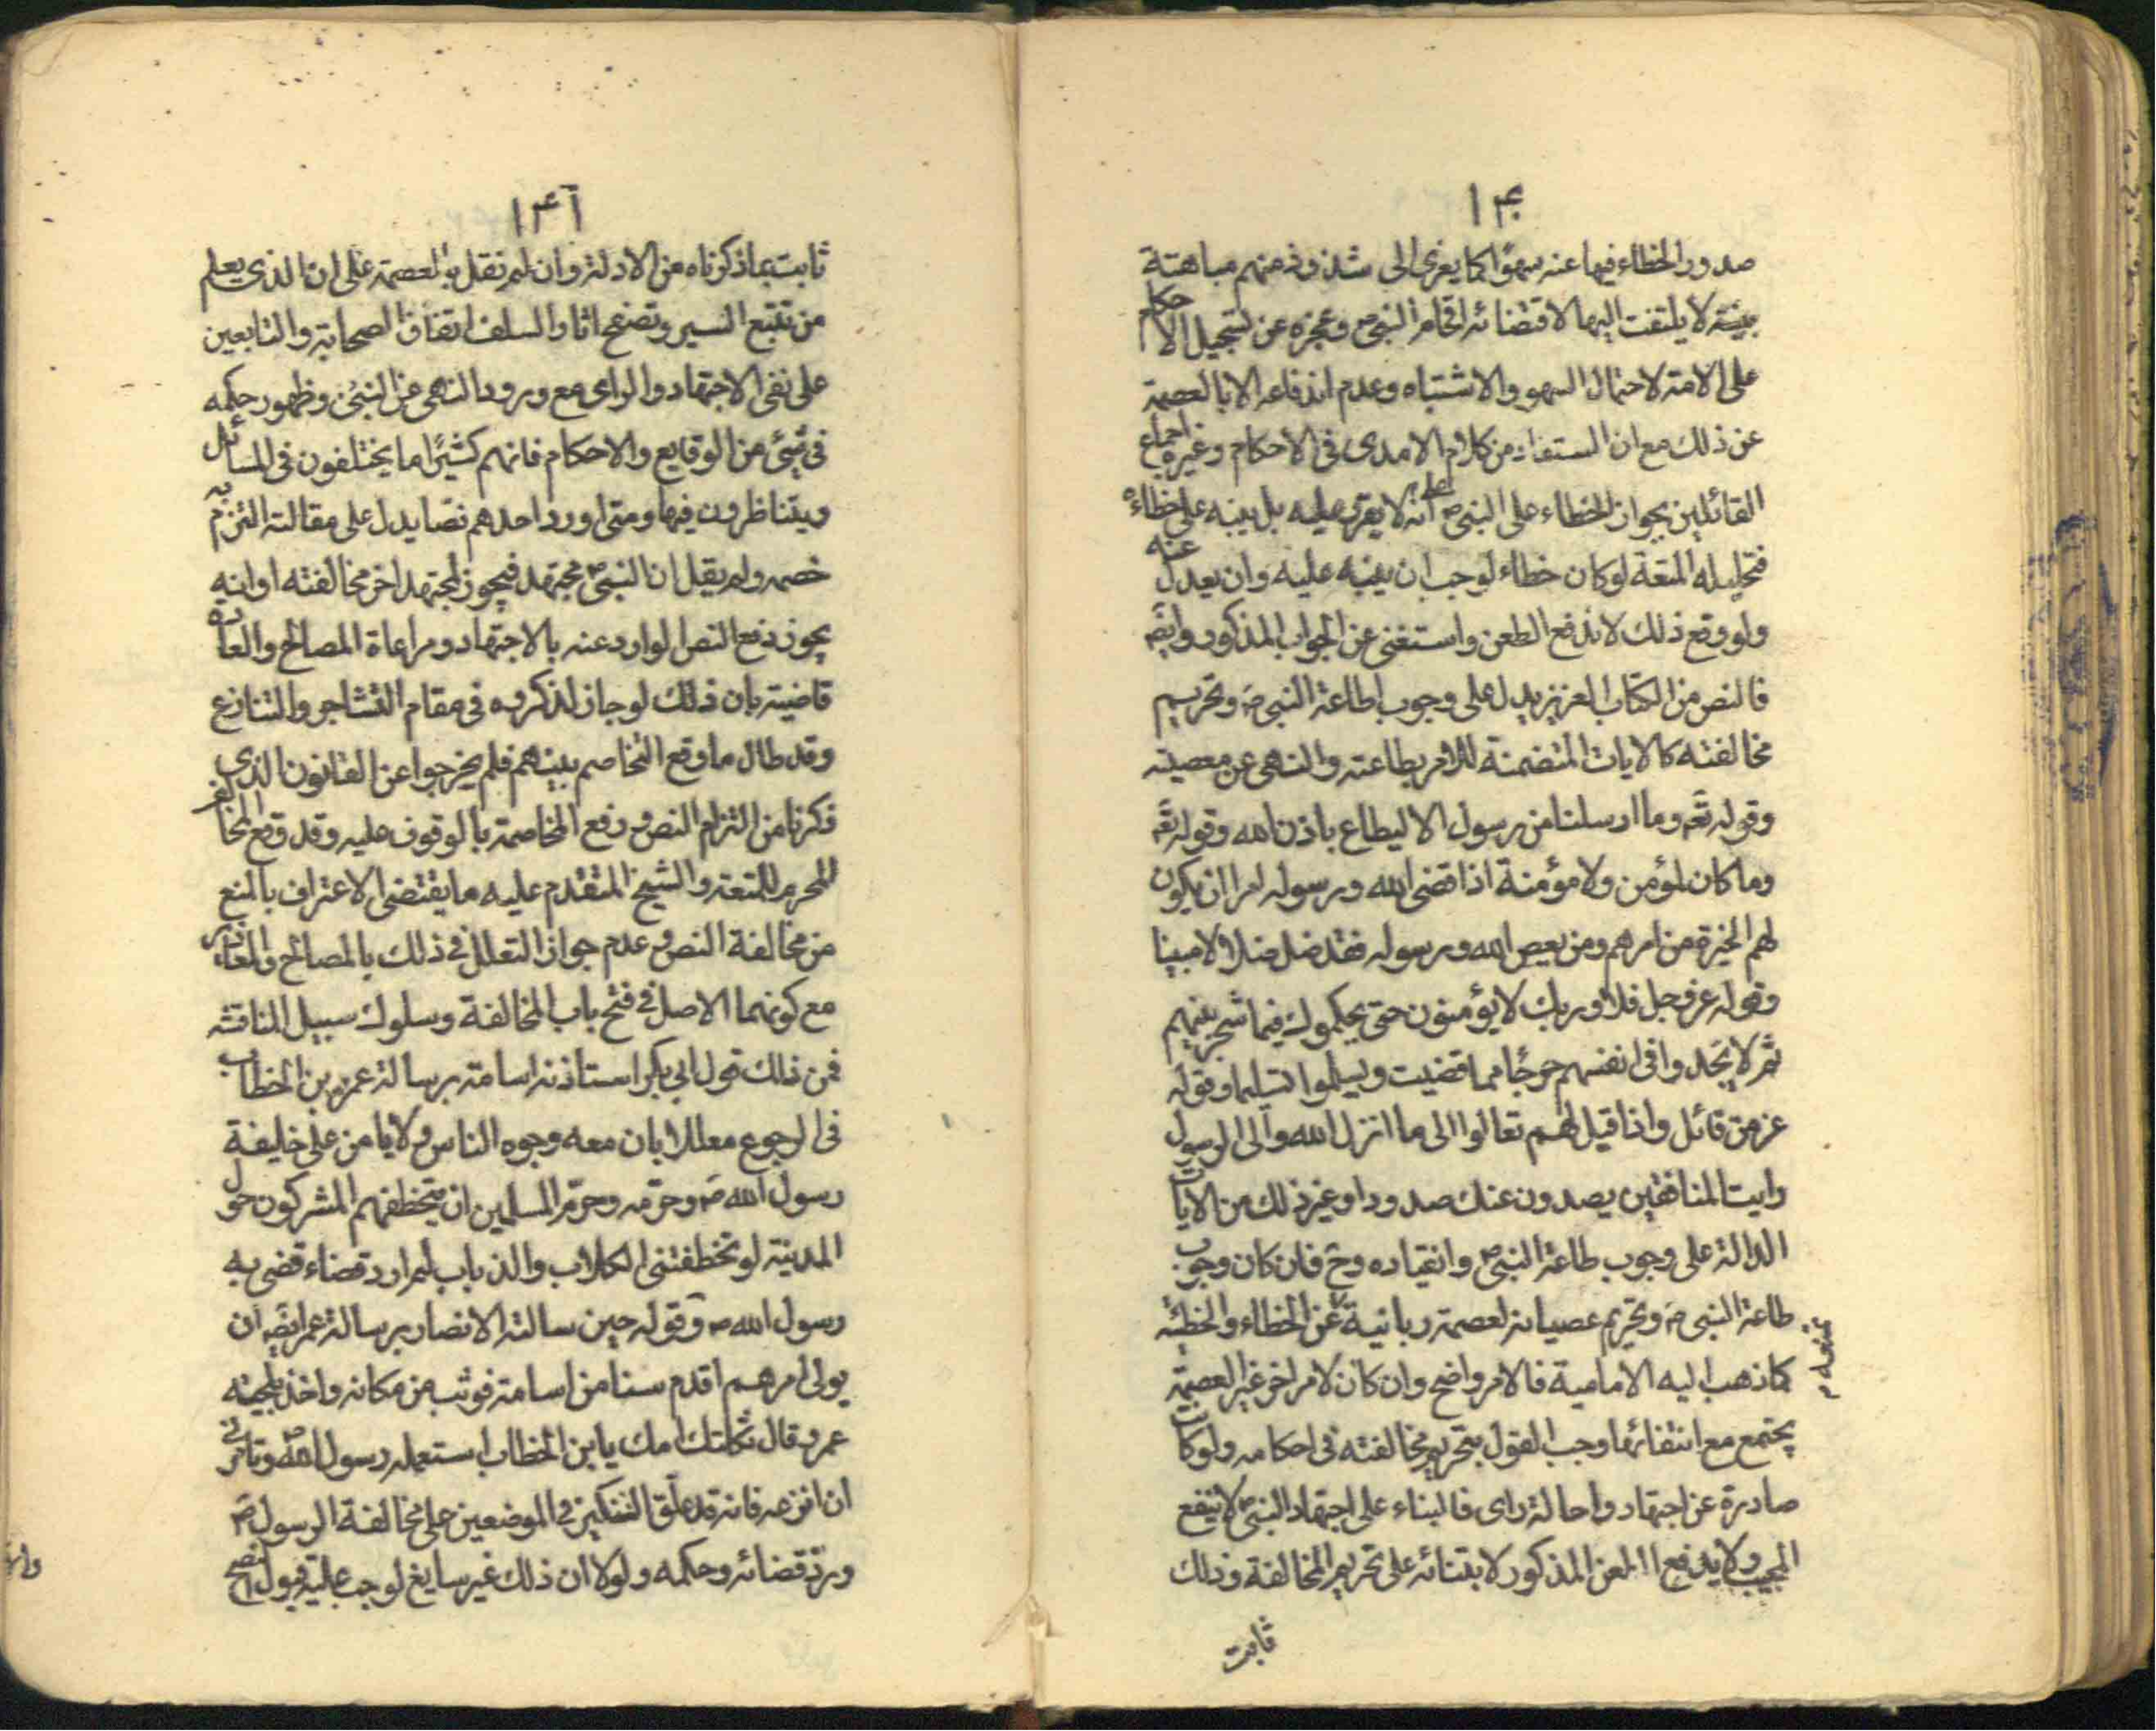 ١٤٠
صدور الخطاء فيها عنه سهوًا كما يعزى الى شذوذ منهم مباهتة
بينة لا يلتفت اليها لاقتضائه افحام النبي ص وعجزه عن تسجيل الاحكام
على الامة لاحتمال السهو والاشتباه وعدم اندفاعه الا بالعصمة
عن ذلك مع ان المستفاد من كلام الامدى فى الاحكام وغيره اجماع
القائلين بجواز الخطاء على النبى ص على انه لا يقر عليه بل ينبه على خطاءه
فتحليله المتعة لو كان خطاء لوجب ان ينبه عليه وان يعدل عنه
ولو وقع ذلك لاندفع الطعن واستغنى عن الجواب المذكور وايضَ
فالنص من الكتاب العزيز يدل على وجوب اطاعة النبى ص وتحريم
مخالفته كالايات المتضمنة للامر بطاعته والنهى عن معصيته
وقوله تعَ وما ارسلنا من رسول الا ليطاع باذن الله وقوله تعَ
وما كان لمؤمن ولا مؤمنة اذا قضى الله ورسوله امرا ان يكون
لهم الخيرة من امرهم ومن يعص الله ورسوله فقد ضل ضلالا مبينا
وقوله عز وجل فلا وربك لا يؤمنون حتى يحكموك فيما شجر بينهم
ثم لا يجدوا فى انفسهم حرجًا مما قضيت ويسلموا تسليما وقوله
عز من قائل واذا قيل لهم تعالوا الى ما انزل الله والى الرسول
رايت المنافقين يصدون عنك صدودا وغير ذلك من الايات
الدالة على وجوب طاعة النبى ص وانقياده وح فان كان وجوب
طاعة النبى ص وتحريم عصيانه لعصمة ربانية عن الخطاء والخطيئة
كما ذهب اليه الامامية فالامر واضح وان كان لامر اخر غير العصمة
يجتمع مع انتفائها وجب القول بتحريم مخالفته فى احكامه ولو كانت
صادرة عن اجتهاد واحالة راى فالبناء على اجتهاد النبى ص لا ينفع
المجيب ولا يدفع الطعن المذكور لابتنائه على تحريم المخالفة وذلك
ثابت
١٤١
ثابت بما ذكرناه من الادلة وان لم نقل بالعصمة على ان الذى يعلم
من تتبع السير وتصفح اثار السلف اتفاق الصحابة والتابعين
على نفى الاجتهاد والراى مع ورود النهى عن النبى ص وظهور حكمه
فى شئ من الوقايع والاحكام فانهم كثيرًا ما يختلفون فى المسائل
ويتناظرون فيها ومتى اورد احدهم نصا يدل على مقالته التزم به
خصمه ولم يقل ان النبى ص مجتهد فيجوز لمجتهد اخر مخالفته او انه
يجوز دفع النص لوارد عنه بالاجتهاد ومراعاة المصالح والعادة
قاضية بان ذلك لو جاز لذكروه فى مقام التشاجر والتنازع
وقد طال ما وقع التخاصم بينهم فلم يخرجوا عن القانون الذى
ذكرنا من التزام النص و رفع المخاصمة بالوقوف عليه وقد وقع لمخالفـ
المحرم للمتعة والشيخ المتقدم عليه ما يقتضى الاعتراف بالمنع
من مخالفة النص وعدم جواز التعلل فى ذلك بالمصالح والمعاذير
مع كونهما الاصل فى فتح باب المخالفة وسلوك سبيل المناقشه
فمن ذلك قول ابى بكر استاذنه اسامة برسالة عمر بن الخطاب
فى الرجوع معللا بان معه وجوه الناس ولا يامن على خليفة
رسول الله ص وحرمه وحرم المسلمين ان يتخطفهم المشركون حول
المدينة لو تخطفتنى الكلاب والذباب لم ارد قضاء قضى به
رسول الله ص وقوله حين سالته الانصار برسالة عمر ايضَ ان
يولى امرهم اقدم سنا من اسامة فوثب من مكانه واخذ بلحيته
عمر وقال ثكلتك امك يا ابن الخطاب استعمله رسول الله ص وتامرنى
ان انزعه فانه قد علق النكير فى الموضعين على مخالفة الرسول ص
ورد قضائه وحكمه ولولا ان ذلك غير سايغ لوجب عليه قبول النصح